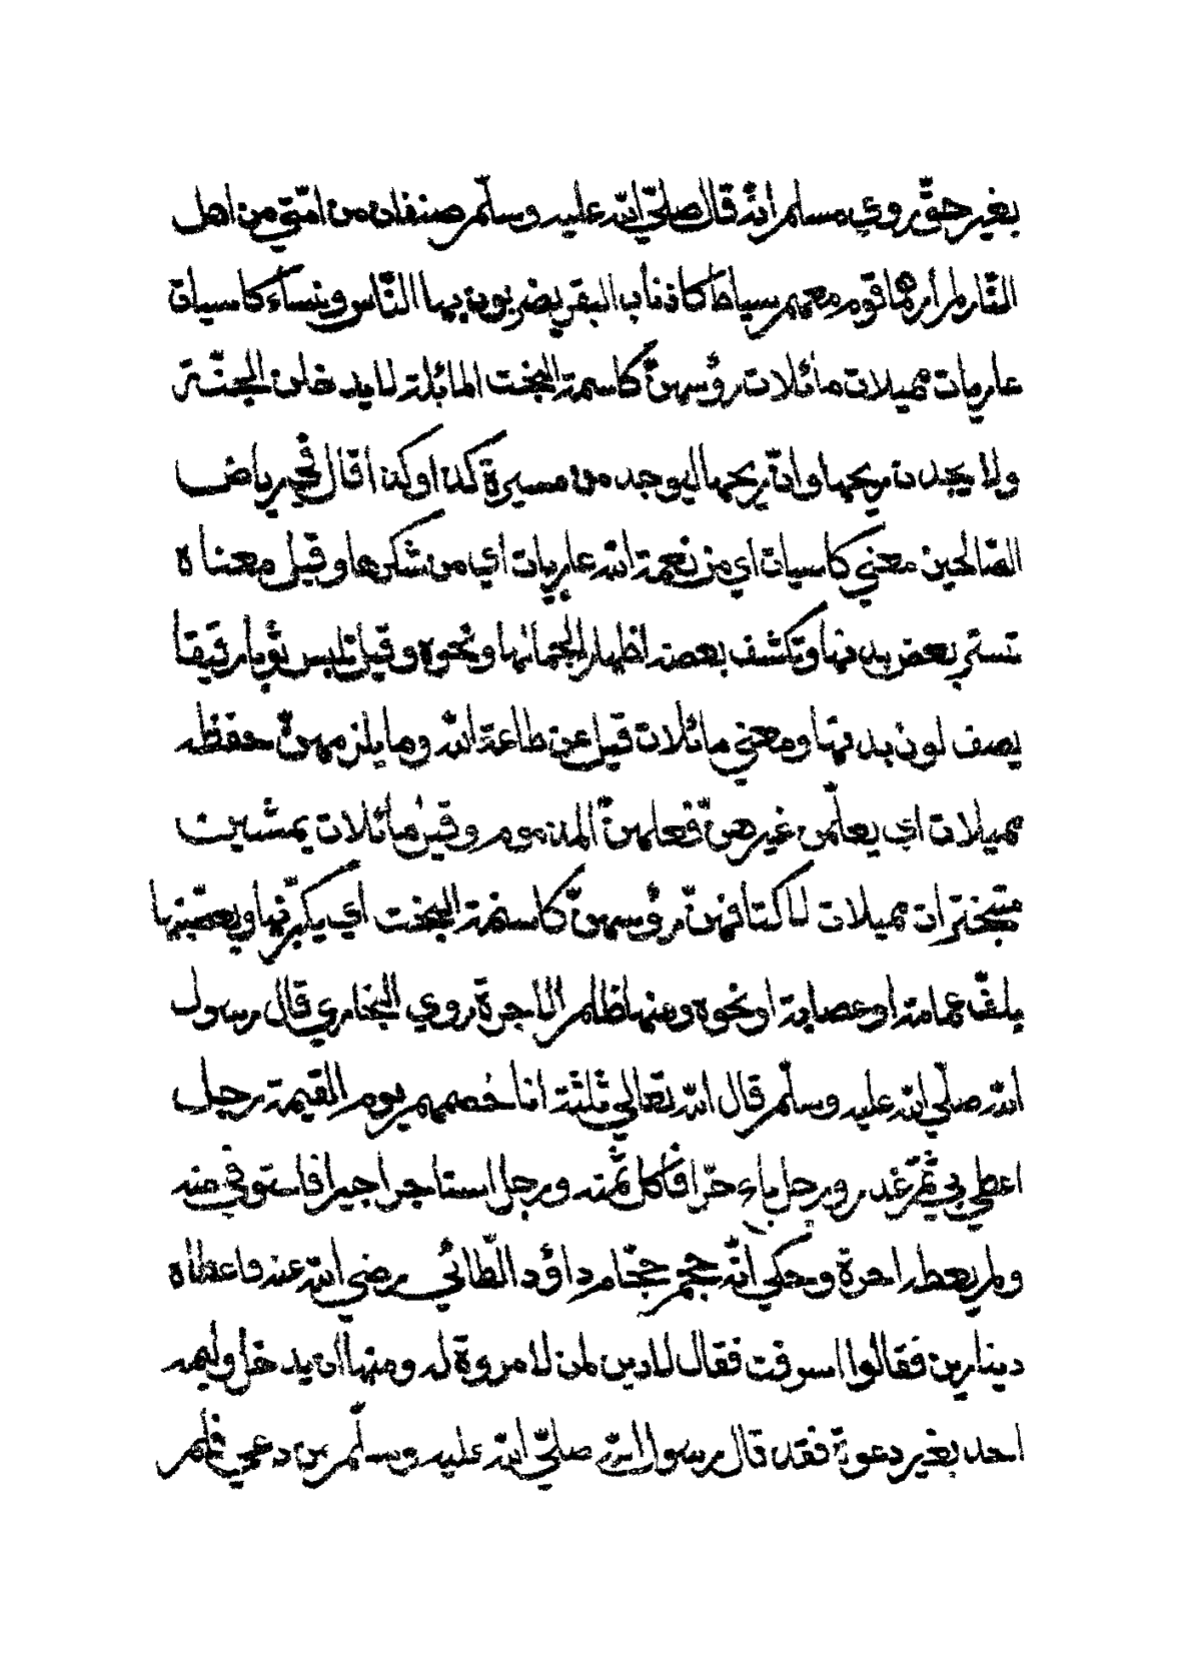 بغير حقّ روي مسلم انّه قال صلّي اللّه عليه وسلّم صنفان من امّتي من اهل
النّار لم أرهما قوم معهم سياط كاذناب البقر يضربون بها النّاس ونساء كاسيات
عاريات مميلات مائلات رؤسهنّ كاسمة البخت المائلة لا يدخلن الجنّة
ولا يجدن ريحها وانّ ريحها ليوجد من مسيرة كذا وكذا قال في رياض
الصّالحين معني كاسيات اي من نعمة اللّه عاريات اي من شكرها وقيل معناه
تستر بعض بدنها وتكشف بعضه اظهارا لجمالها ونحوه وقيل تلبس ثوبا رقيقا
يصف لون بدنها ومعني مائلات قيل عن طاعة اللّه وما يلزمهنّ حفظه
مميلات اي يعلّمن غيرهنّ فعلهنّ المذموم وقيل مائلات يمشين
متبخترات مميلات لاكتافهنّ رؤسهنّ كاسنمة البخت اي يكبّرنها ويعصّبنها
بلفّ عمامة او عصابة او نحوه ومنها ظلم الاجرة روي البخاري قال رسول
اللّه صلّي اللّه عليه وسلّم قال اللّه تعالي ثلثة انا خصمهم يوم القيمة رجل
اعطي بي ثمّ غدر ورجل باع حرّا فأكل ثمنه ورجل استاجر اجيرا فاستوفي منه
ولم يعطه اجرة وحكي انّه حجم حجّام داؤد الطّائي رضي اللّه عنه فاعطاه
دينارين فقالوا اسرفت فقال لا دين لمن لا مروة له ومنها ان يدخل وليمه
احد بغير دعوة فقد قال رسول اللّه صلّي اللّه عليه وسلّم من دعي فلم